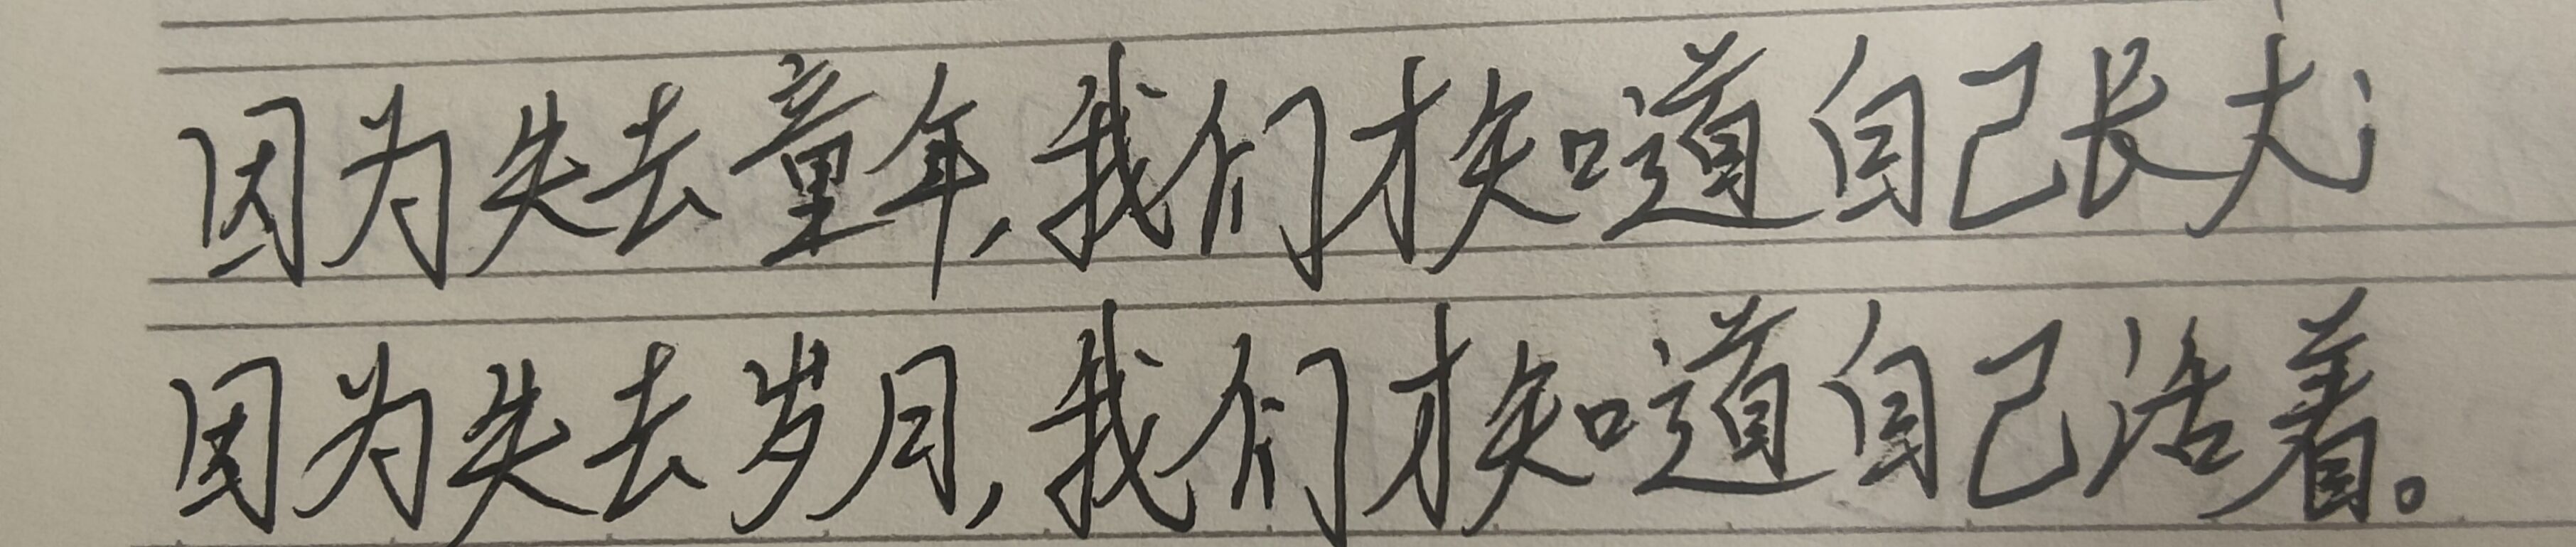 因为失去童年,我们才知道自己长大;
因为失去岁月,我们才知道自己活着。